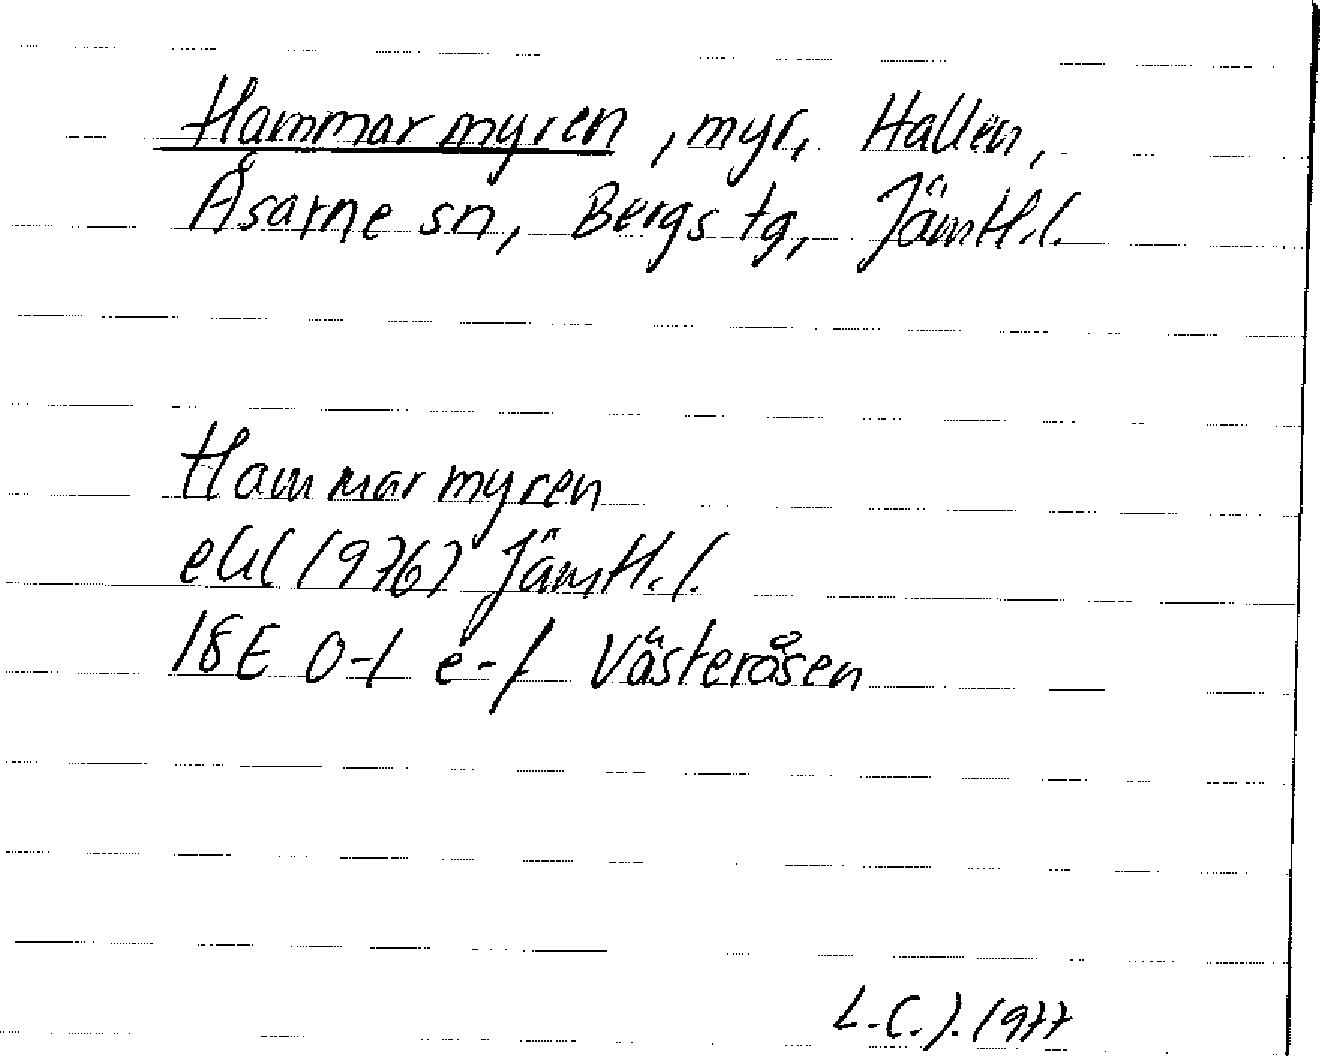 Hammarmyren, myr, Hallen,
Åsarne sn, Bergs tg, Jämtl. l.
Hammarmyren
ekl (1976) Jämtl. l.
18E 0-1 e-f Västeråsen
L.C.J. 1977